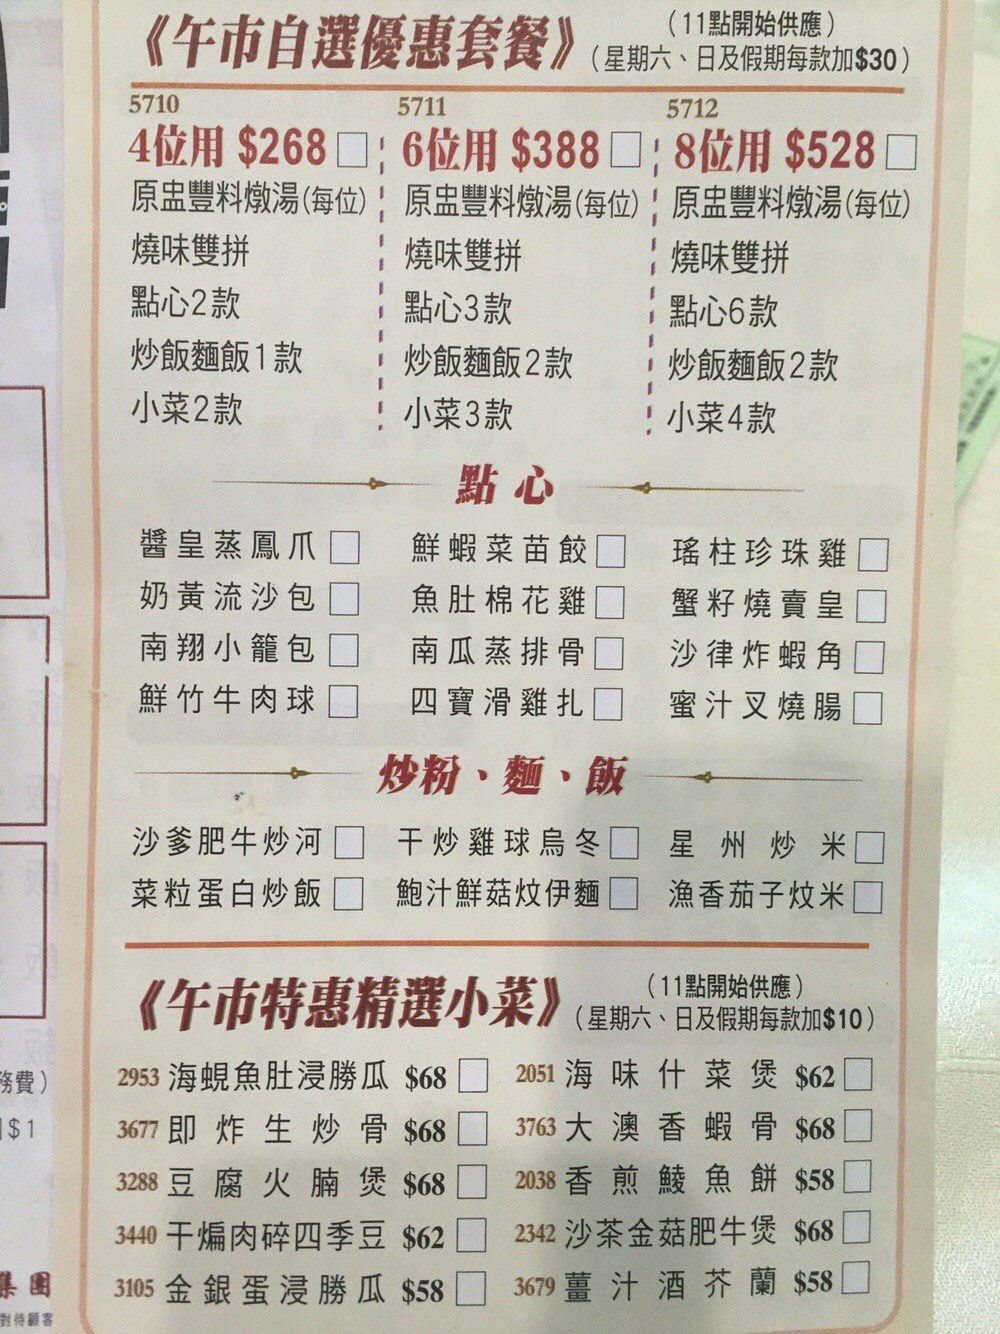 《午市自選優惠套餐》
(11點開始供應)
(星期六、日及假期每款加$30)
5710
4位用 $268
原盅豐料燉湯(每位)
燒味雙拼
點心2款
炒飯麵飯1款
小菜2款
5711
6位用 $388
原盅豐料燉湯(每位)
燒味雙拼
點心3款
炒飯麵飯2款
小菜3款
5712
8位用 $528
原盅豐料燉湯(每位)
燒味雙拼
點心6款
炒飯麵飯2款
小菜4款
點心
醬皇蒸鳳爪 鮮蝦菜苗餃 瑤柱珍珠雞
奶黃流沙包 魚肚棉花雞 蟹籽燒賣皇
南翔小籠包 南瓜蒸排骨 沙律炸蝦角
鮮竹牛肉球 四寶滑雞扎 蜜汁叉燒腸
炒粉、麵、飯
沙爹肥牛炒河 干炒雞球烏冬 星州炒米
菜粒蛋白炒飯 鮑汁鮮菇炆伊麵 漁香茄子炆米
《午市特惠精選小菜》
(11點開始供應)
(星期六、日及假期每款加$10)
2953 海蜆魚肚浸勝瓜 $68 2051 海味什菜煲 $62
3677 即炸生炒骨 $68 3763 大澳香蝦骨 $68
3288 豆腐火腩煲 $68 2038 香煎鯪魚餅 $58
3440 干煸肉碎四季豆 $62 2342 沙茶金菇肥牛煲 $68
3105 金銀蛋浸勝瓜 $58 3679 薑汁酒芥蘭 $58
務費)
$1
集團
對待顧客